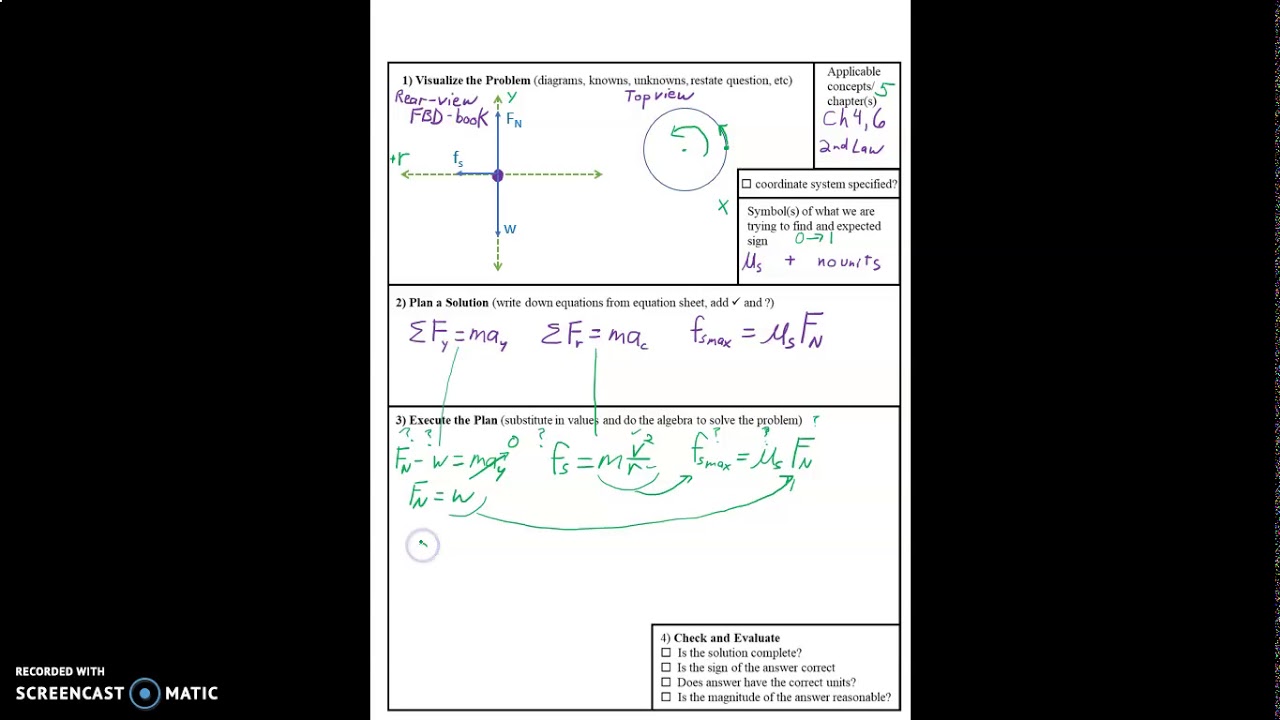 1) Visualize the Problem (diagrams, knowns, unknowns, restate question, etc)
Rear-view
FBD-book
y
F_N
+r
f_s
W
Top view
x
Applicable
concepts/ 5
chapter(s)
Ch 4, 6
2nd Law
☐ coordinate system specified?
Symbol(s) of what we are
trying to find and expected
sign 0→1
μ_s + no units
2) Plan a Solution (write down equations from equation sheet, add ✓ and ?)
ΣF_y = ma_y ΣF_r = ma_c f_smax = μ_s F_N
3) Execute the Plan (substitute in values and do the algebra to solve the problem) ?
? ? 0 ? ✓ ? ?
F_N - w = ma_y f_s = m v²/r f_smax = μ_s F_N
F_N = w
4) Check and Evaluate
☐ Is the solution complete?
☐ Is the sign of the answer correct
☐ Does answer have the correct units?
☐ Is the magnitude of the answer reasonable?
RECORDED WITH
SCREENCAST MATIC